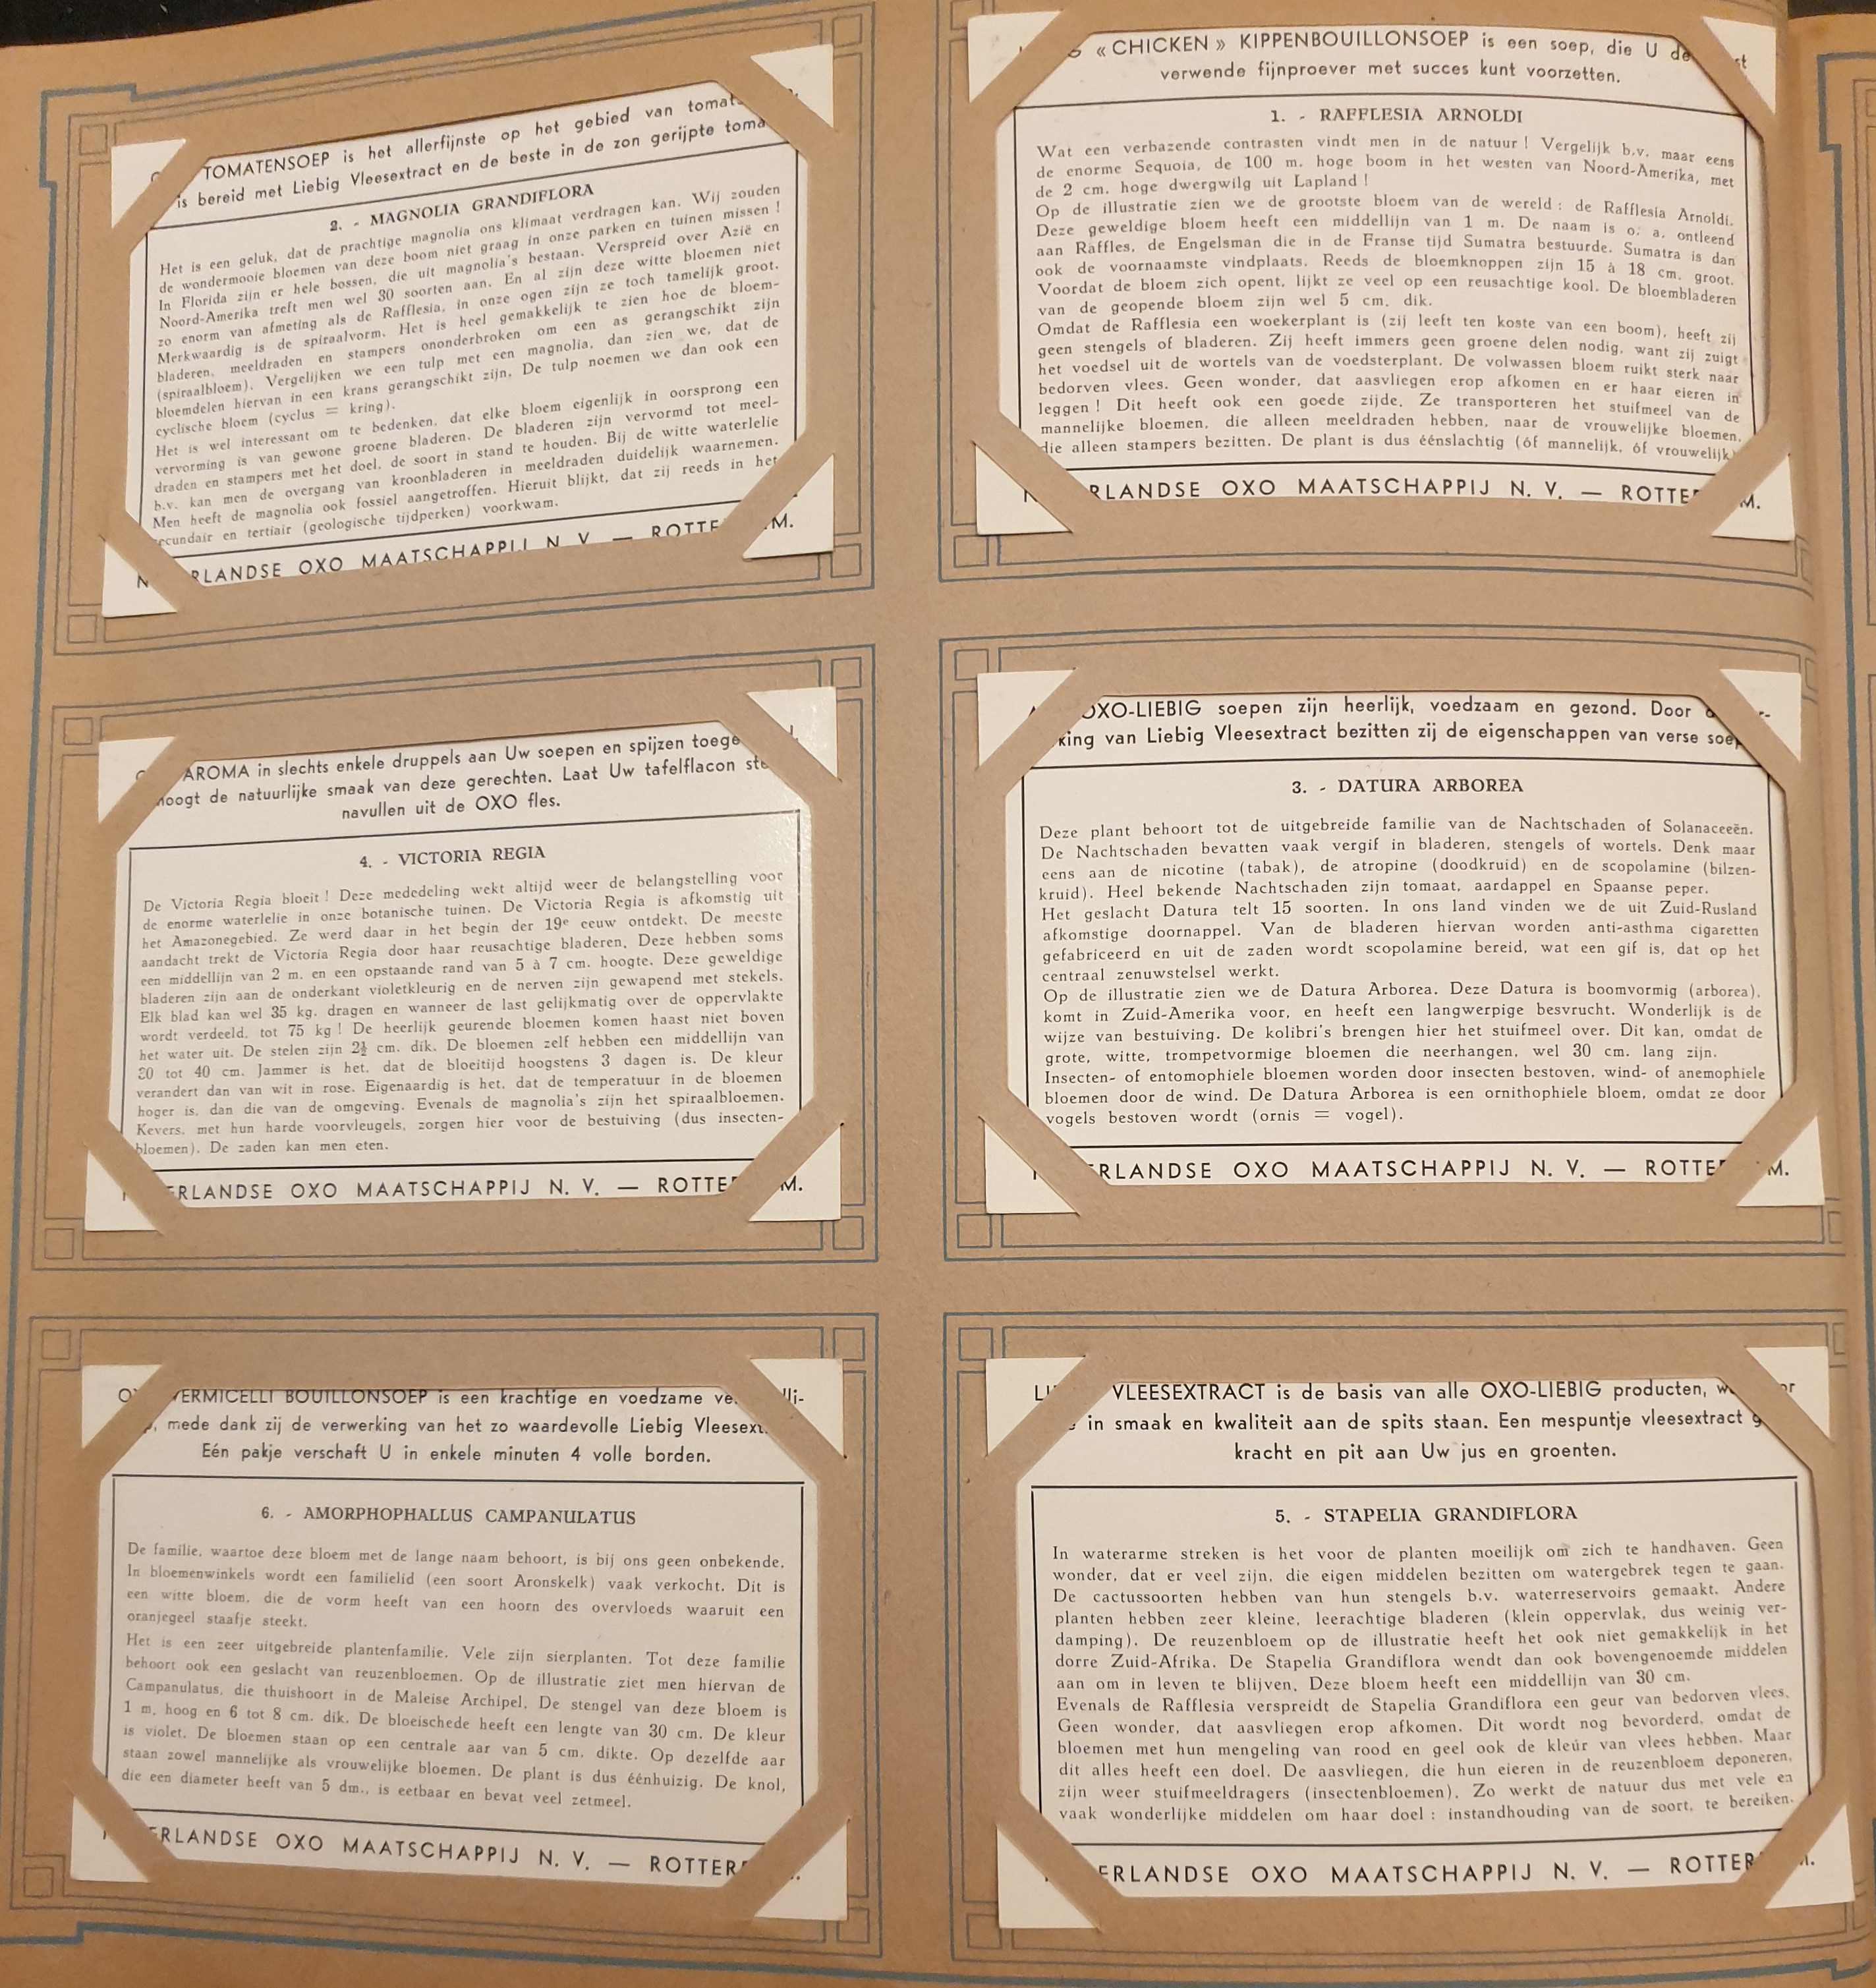 TOMATENSOEP is het allerfijnste op het gebied van
is bereid met Liebig Vleesextract en de beste in de zon gerijpte
2. - MAGNOLIA GRANDIFLORA
Het is een geluk, dat de prachtige magnolia ons klimaat verdragen kan. Wij zouden
de wondermooie bloemen van deze boom niet graag in onze parken en tuinen missen !
In Florida zijn er hele bossen, die uit magnolia's bestaan. Verspreid over Azië en
Noord-Amerika treft men wel 30 soorten aan. En al zijn deze witte bloemen niet
zo enorm van afmeting als de Rafflesia, in onze ogen zijn ze toch tamelijk groot.
Merkwaardig is de spiraalvorm. Het is heel gemakkelijk te zien hoe de bloem-
bladeren, meeldraden en stampers ononderbroken om een as gerangschikt zijn
(spiraalbloem). Vergelijken we een tulp met een magnolia, dan zien we, dat de
bloemdelen hiervan in een krans gerangschikt zijn. De tulp noemen we dan ook een
cyclische bloem (cyclus = kring).
Het is wel interessant om te bedenken, dat elke bloem eigenlijk in oorsprong een
vervorming is van gewone groene bladeren. De bladeren zijn vervormd tot meel-
draden en stampers met het doel, de soort in stand te houden. Bij de witte waterlelie
b.v. kan men de overgang van kroonbladeren in meeldraden duidelijk waarnemen.
Men heeft de magnolia ook fossiel aangetroffen. Hieruit blijkt, dat zij reeds in het
secundair en tertiair (geologische tijdperken) voorkwam.
N RLANDSE OXO MAATSCHAPPIJ N. V. — ROTTE M.
« CHICKEN » KIPPENBOUILLONSOEP is een soep, die U de
verwende fijnproever met succes kunt voorzetten.
1. - RAFFLESIA ARNOLDI
Wat een verbazende contrasten vindt men in de natuur ! Vergelijk b.v. maar eens
de enorme Sequoia, de 100 m. hoge boom in het westen van Noord-Amerika, met
de 2 cm. hoge dwergwilg uit Lapland !
Op de illustratie zien we de grootste bloem van de wereld : de Rafflesia Arnoldi.
Deze geweldige bloem heeft een middellijn van 1 m. De naam is o. a. ontleend
aan Raffles, de Engelsman die in de Franse tijd Sumatra bestuurde. Sumatra is dan
ook de voornaamste vindplaats. Reeds de bloemknoppen zijn 15 à 18 cm. groot.
Voordat de bloem zich opent, lijkt ze veel op een reusachtige kool. De bloembladeren
van de geopende bloem zijn wel 5 cm. dik.
Omdat de Rafflesia een woekerplant is (zij leeft ten koste van een boom), heeft zij
geen stengels of bladeren. Zij heeft immers geen groene delen nodig, want zij zuigt
het voedsel uit de wortels van de voedsterplant. De volwassen bloem ruikt sterk naar
bedorven vlees. Geen wonder, dat aasvliegen erop afkomen en er haar eieren in
leggen ! Dit heeft ook een goede zijde. Ze transporteren het stuifmeel van de
mannelijke bloemen, die alleen meeldraden hebben, naar de vrouwelijke bloemen,
die alleen stampers bezitten. De plant is dus éénslachtig (óf mannelijk, óf vrouwelijk)
N RLANDSE OXO MAATSCHAPPIJ N. V. — ROTTE M.
AROMA in slechts enkele druppels aan Uw soepen en spijzen
hoogt de natuurlijke smaak van deze gerechten. Laat Uw tafelflacon
navullen uit de OXO fles.
4. - VICTORIA REGIA
De Victoria Regia bloeit ! Deze mededeling wekt altijd weer de belangstelling voor
de enorme waterlelie in onze botanische tuinen. De Victoria Regia is afkomstig uit
het Amazonegebied. Ze werd daar in het begin der 19e eeuw ontdekt. De meeste
aandacht trekt de Victoria Regia door haar reusachtige bladeren. Deze hebben soms
een middellijn van 2 m. en een opstaande rand van 5 à 7 cm. hoogte. Deze geweldige
bladeren zijn aan de onderkant violetkleurig en de nerven zijn gewapend met stekels.
Elk blad kan wel 35 kg. dragen en wanneer de last gelijkmatig over de oppervlakte
wordt verdeeld, tot 75 kg ! De heerlijk geurende bloemen komen haast niet boven
het water uit. De stelen zijn 2½ cm. dik. De bloemen zelf hebben een middellijn van
20 tot 40 cm. Jammer is het, dat de bloeitijd hoogstens 3 dagen is. De kleur
verandert dan van wit in rose. Eigenaardig is het, dat de temperatuur in de bloemen
hoger is, dan die van de omgeving. Evenals de magnolia's zijn het spiraalbloemen.
Kevers, met hun harde voorvleugels, zorgen hier voor de bestuiving (dus insecten-
bloemen). De zaden kan men eten.
ERLANDSE OXO MAATSCHAPPIJ N. V. — ROTTE M.
OXO-LIEBIG soepen zijn heerlijk, voedzaam en gezond. Door
king van Liebig Vleesextract bezitten zij de eigenschappen van verse
3. - DATURA ARBOREA
Deze plant behoort tot de uitgebreide familie van de Nachtschaden of Solanaceeën.
De Nachtschaden bevatten vaak vergif in bladeren, stengels of wortels. Denk maar
eens aan de nicotine (tabak), de atropine (doodkruid) en de scopolamine (bilzen-
kruid). Heel bekende Nachtschaden zijn tomaat, aardappel en Spaanse peper.
Het geslacht Datura telt 15 soorten. In ons land vinden we de uit Zuid-Rusland
afkomstige doornappel. Van de bladeren hiervan worden anti-asthma cigaretten
gefabriceerd en uit de zaden wordt scopolamine bereid, wat een gif is, dat op het
centraal zenuwstelsel werkt.
Op de illustratie zien we de Datura Arborea. Deze Datura is boomvormig (arborea),
komt in Zuid-Amerika voor, en heeft een langwerpige besvrucht. Wonderlijk is de
wijze van bestuiving. De kolibri's brengen hier het stuifmeel over. Dit kan, omdat de
grote, witte, trompetvormige bloemen die neerhangen, wel 30 cm. lang zijn.
Insecten- of entomophiele bloemen worden door insecten bestoven, wind- of anemophiele
bloemen door de wind. De Datura Arborea is een ornithophiele bloem, omdat ze door
vogels bestoven wordt (ornis = vogel).
ERLANDSE OXO MAATSCHAPPIJ N. V. — ROTTE M.
VERMICELLI BOUILLONSOEP is een krachtige en voedzame
mede dank zij de verwerking van het zo waardevolle Liebig
Eén pakje verschaft U in enkele minuten 4 volle borden.
6. - AMORPHOPHALLUS CAMPANULATUS
De familie, waartoe deze bloem met de lange naam behoort, is bij ons geen onbekende.
In bloemenwinkels wordt een familielid (een soort Aronskelk) vaak verkocht. Dit is
een witte bloem, die de vorm heeft van een hoorn des overvloeds waaruit een
oranjegeel staafje steekt.
Het is een zeer uitgebreide plantenfamilie. Vele zijn sierplanten. Tot deze familie
behoort ook een geslacht van reuzenbloemen. Op de illustratie ziet men hiervan de
Campanulatus, die thuishoort in de Maleise Archipel. De stengel van deze bloem is
1 m. hoog en 6 tot 8 cm. dik. De bloeischede heeft een lengte van 30 cm. De kleur
is violet. De bloemen staan op een centrale aar van 5 cm. dikte. Op dezelfde aar
staan zowel mannelijke als vrouwelijke bloemen. De plant is dus éénhuizig. De knol,
die een diameter heeft van 5 dm., is eetbaar en bevat veel zetmeel.
ERLANDSE OXO MAATSCHAPPIJ N. V. — ROTTER
VLEESEXTRACT is de basis van alle OXO-LIEBIG producten,
in smaak en kwaliteit aan de spits staan. Een mespuntje vleesextract
kracht en pit aan Uw jus en groenten.
5. - STAPELIA GRANDIFLORA
In waterarme streken is het voor de planten moeilijk om zich te handhaven. Geen
wonder, dat er veel zijn, die eigen middelen bezitten om watergebrek tegen te gaan.
De cactussoorten hebben van hun stengels b.v. waterreservoirs gemaakt. Andere
planten hebben zeer kleine, leerachtige bladeren (klein oppervlak, dus weinig ver-
damping). De reuzenbloem op de illustratie heeft het ook niet gemakkelijk in het
dorre Zuid-Afrika. De Stapelia Grandiflora wendt dan ook bovengenoemde middelen
aan om in leven te blijven. Deze bloem heeft een middellijn van 30 cm.
Evenals de Rafflesia verspreidt de Stapelia Grandiflora een geur van bedorven vlees.
Geen wonder, dat aasvliegen erop afkomen. Dit wordt nog bevorderd, omdat de
bloemen met hun mengeling van rood en geel ook de kleur van vlees hebben. Maar
dit alles heeft een doel. De aasvliegen, die hun eieren in de reuzenbloem deponeren,
zijn weer stuifmeeldragers (insectenbloemen). Zo werkt de natuur dus met vele en
vaak wonderlijke middelen om haar doel : instandhouding van de soort, te bereiken.
ERLANDSE OXO MAATSCHAPPIJ N. V. — ROTTER